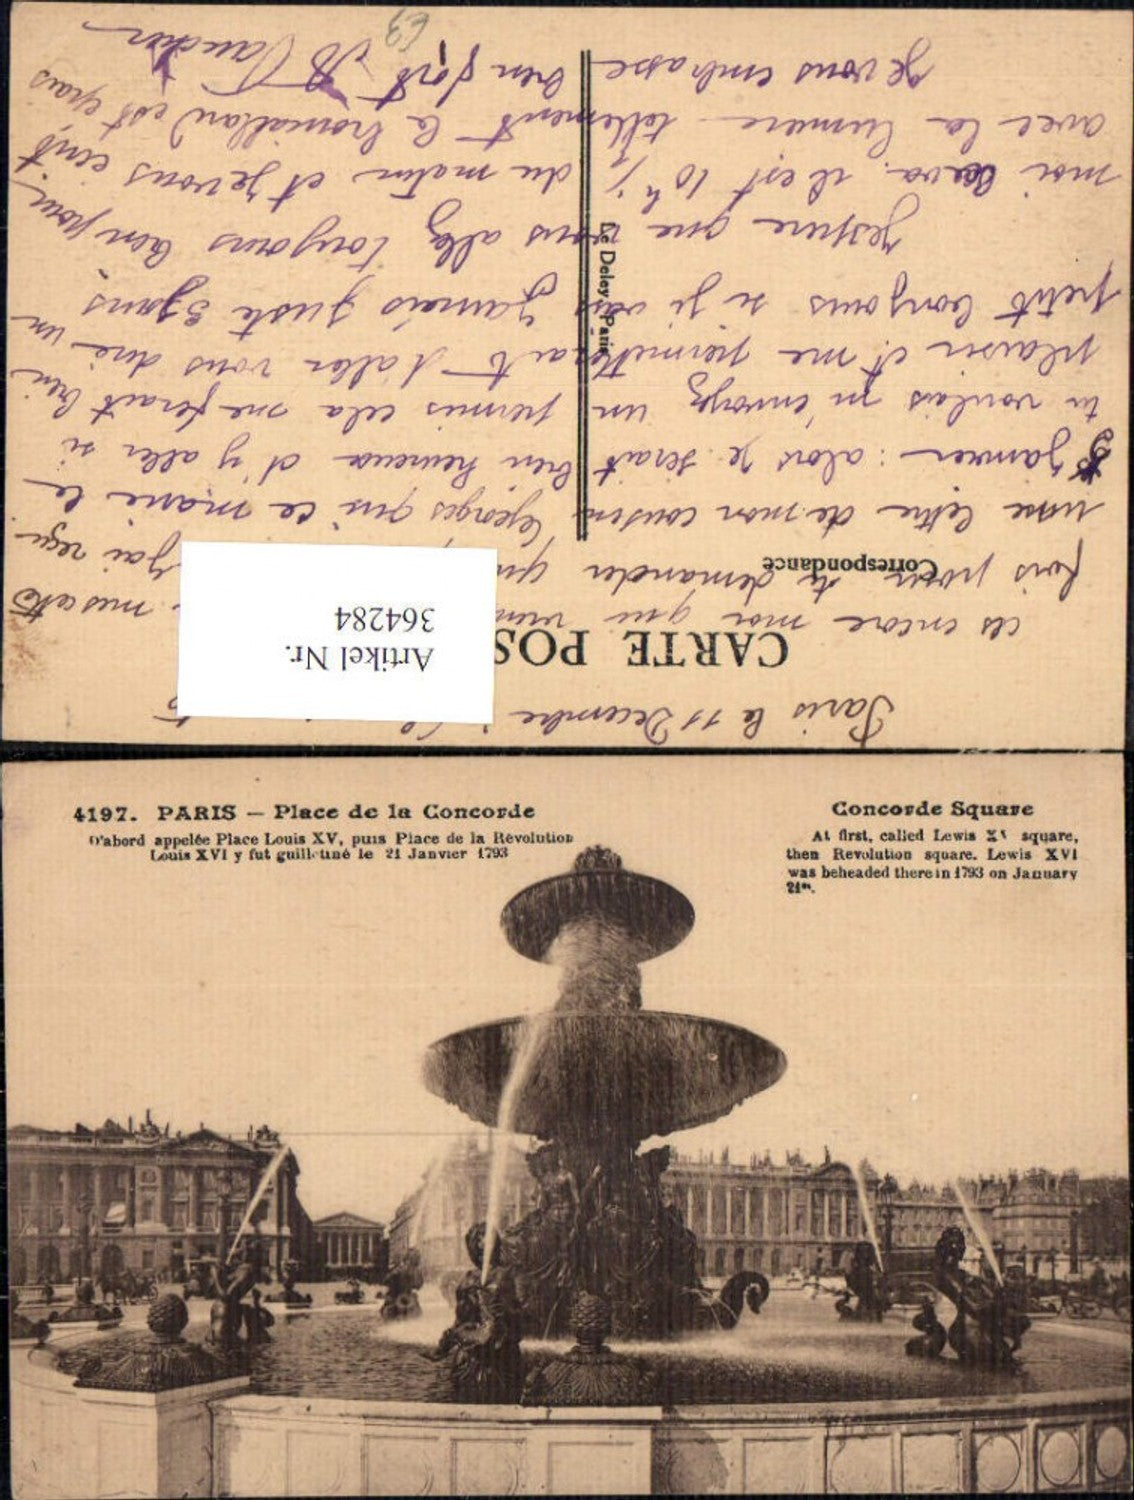 Paris le 11 Decembre
CARTE POS
Correspondance
Artikel Nr.
364284
Le Deley, Paris
cts encore moi que
fois pour te demander j'ai reçu
une lettre de mon cousin Georges qui ce marie le
janvier: alors je serait bien heureux d'y aller si
tu voulais m'envoyez un permis cela me ferait bien
plaisir et me permetterait d'aler vous dire un
petit bonjours si je vais jamais juste 3 jours
J'espere que vous allez toujours bon pour
moi ca va. il est 10h du matin et je vous ecrit
avec la lumiere tellement le brouillard est epais
Je vous embrasse bien fort
63
4197. PARIS — Place de la Concorde
D'abord appelée Place Louis XV, puis Place de la Révolution
Louis XVI y fut guillotiné le 21 Janvier 1793
Concorde Square
At first, called Lewis XV square,
then Revolution square. Lewis XVI
was beheaded there in 1793 on January
21th.